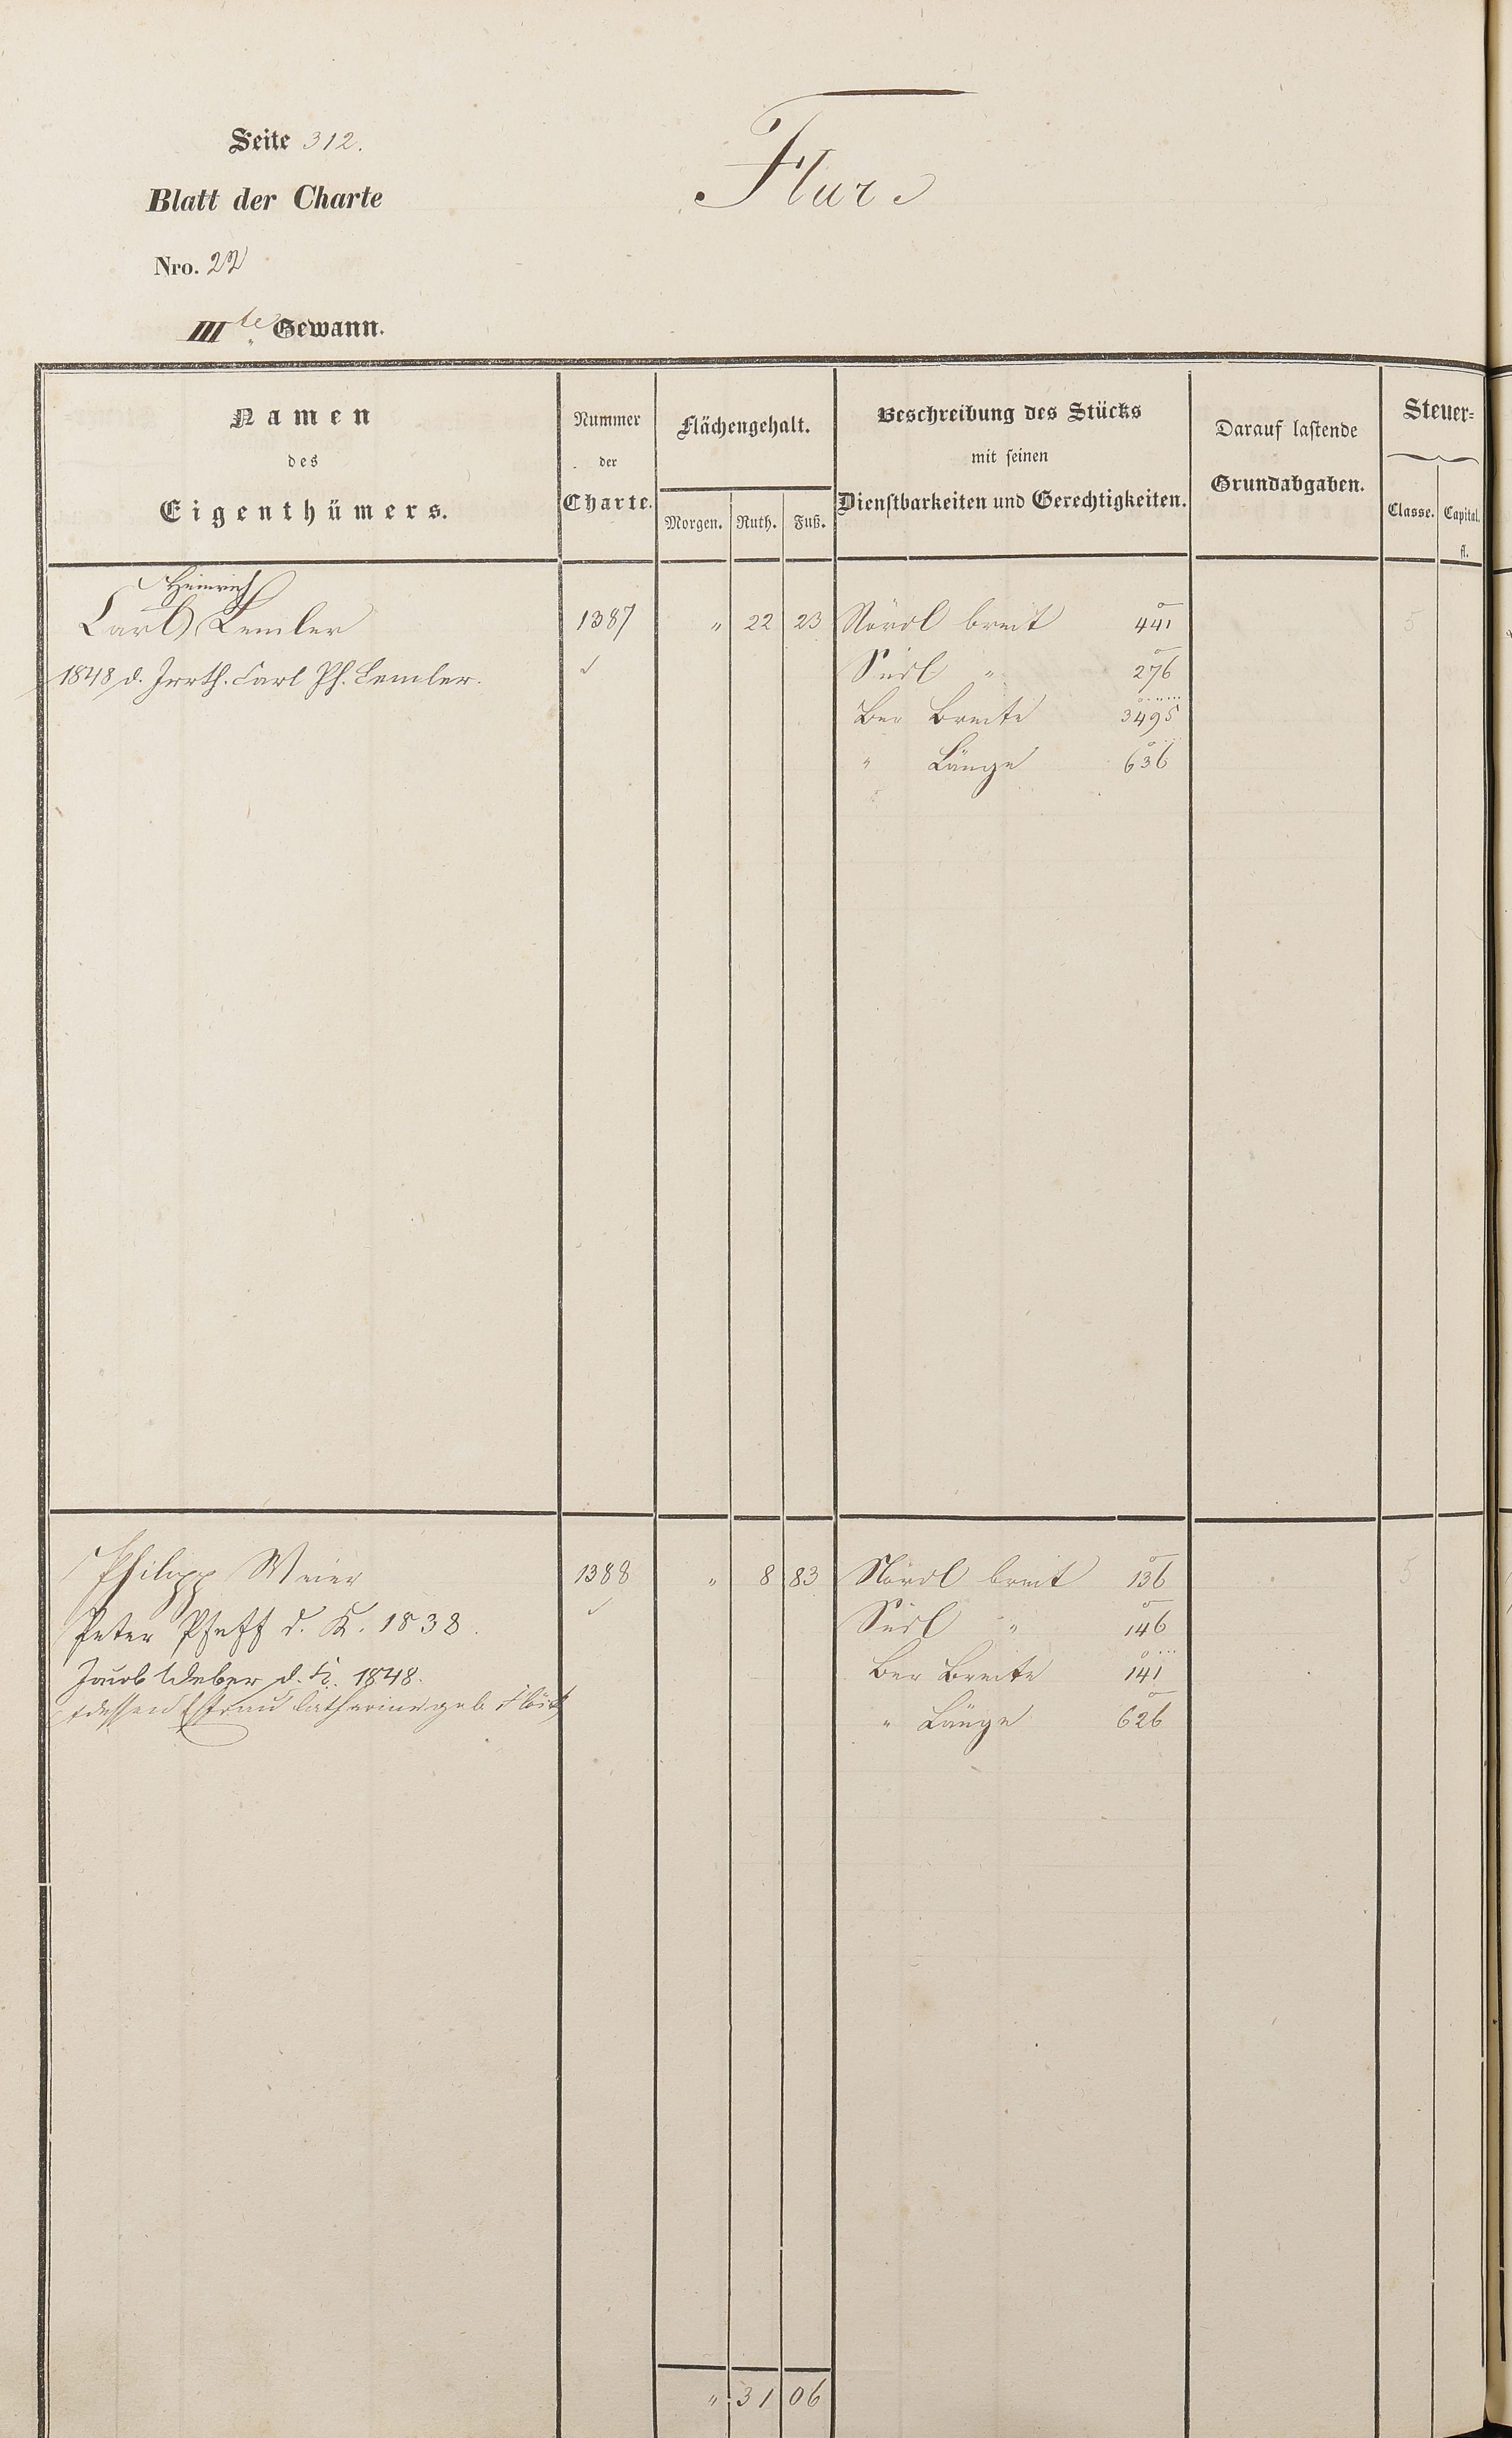 Seite 312.
Flur
Blatt der Charte
Nro. 22
III te Gewann.
Namen des Eigenthümers.
Nummer der Charte.
Flächengehalt.
Morgen. Ruth. Fuß.
Beschreibung des Stücks mit seinen Dienstbarkeiten und Gerechtigkeiten.
Darauf lastende Grundabgaben.
Steuer=
Classe. Capital.
fl.
Heinrich
Carl Lemler 1387 " 22 23 Nördl breit 441 5
1848 d. Irrth. Carl Ph. Lemler. Südl " 276
Ber Breite 3495
" Länge 636
Philipp Meier 1388 " 8 83 Nördl breit 136 5
Peter Pfaff d. K. 1838. Südl " 146
Jacob Weber d. K. 1848. Ber Breite 141
dessen Ehefrau Catharine geb. " Länge 626
" 31 06